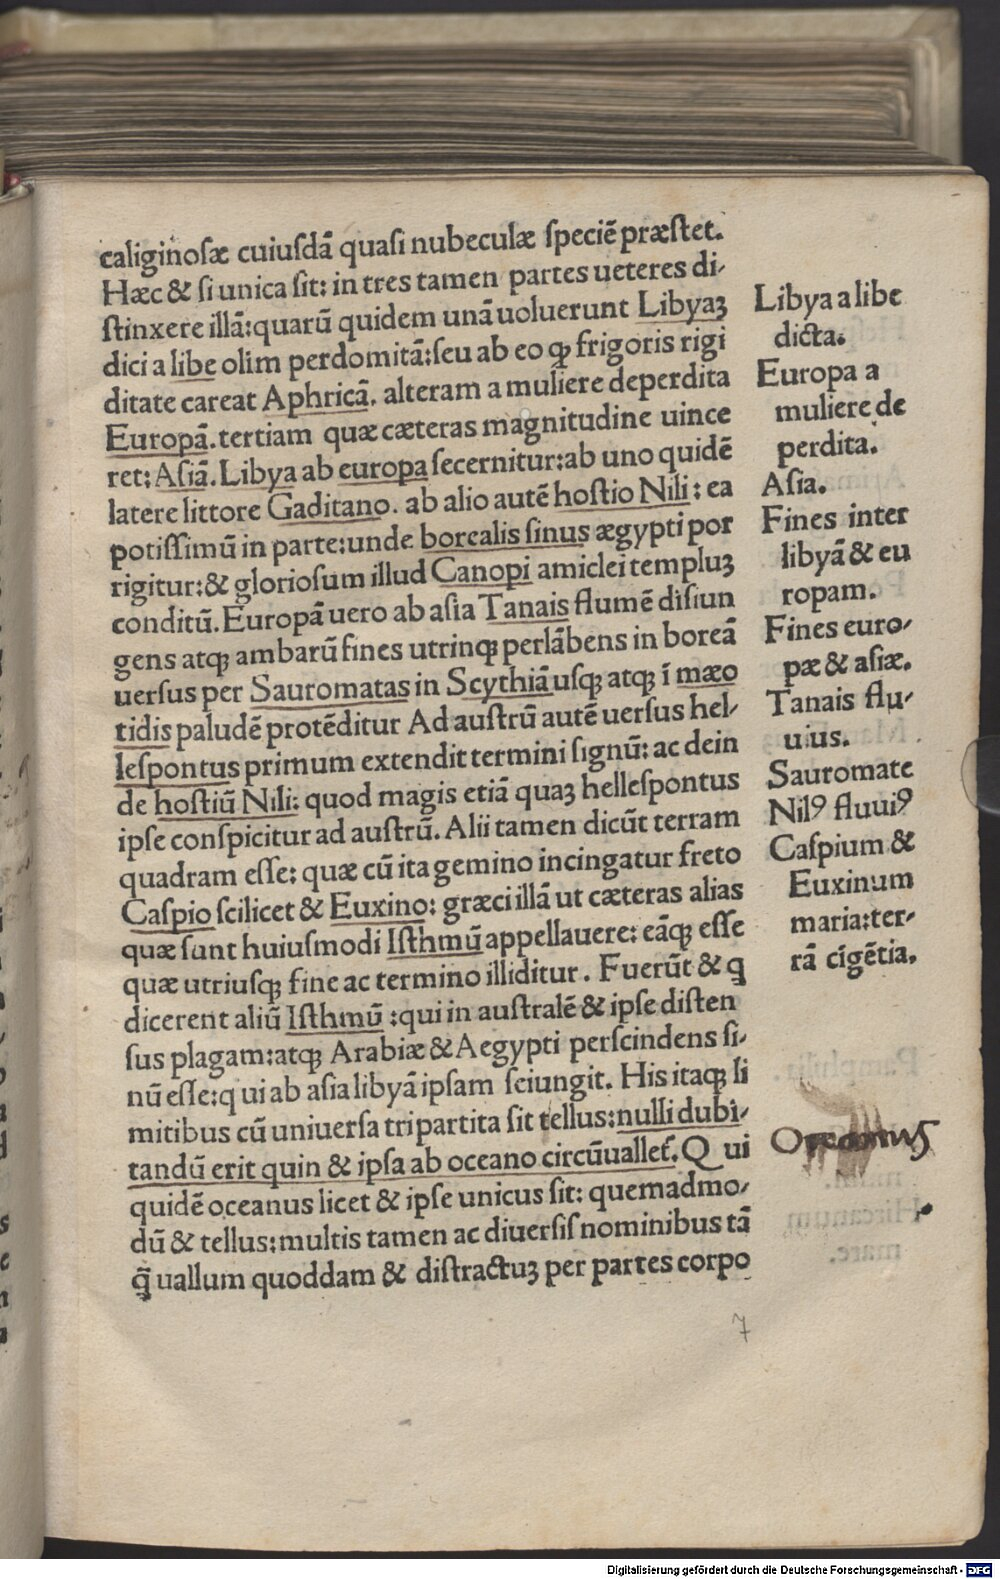 caliginoſæ cuiuſdā quaſi nubeculæ ſpeciē præſtet.
Hæc & ſi unica ſit: in tres tamen partes ueteres di-
ſtinxere illā: quarū quidem unā uoluerunt Libyaꝫ
dici a libe olim perdomitā: ſeu ab eo ꝙ frigoris rigi
ditate careat Aphricā. alteram a muliere deperdita
Europā. tertiam quæ cæteras magnitudine uince
ret: Aſiā. Libya ab europa ſecernitur: ab uno quidē
latere littore Gaditano. ab alio autē hoſtio Nili: ea
potiſſimū in parte: unde borealis ſinus ægypti por
rigitur: & glorioſum illud Canopi amiclei templuꝫ
conditū. Europā uero ab aſia Tanais flumē diſiun
gens atqꝫ ambarū fines utrinqꝫ perlābens in boreā
uerſus per Sauromatas in Scythiā uſqꝫ atqꝫ ī mæo
tidis paludē protēditur Ad auſtrū autē uerſus hel-
leſpontus primum extendit termini ſignū: ac dein
de hoſtiū Nili: quod magis etiā quaꝫ helleſpontus
ipſe conſpicitur ad auſtrū. Alii tamen dicūt terram
quadram eſſe: quæ cū ita gemino incingatur freto
Caſpio ſcilicet & Euxino: græci illā ut cæteras alias
quæ ſunt huiuſmodi Iſthmū appellauere: eāqꝫ eſſe
quæ utriuſqꝫ fine ac termino illiditur. Fuerūt & ꝗ
dicerent aliū Iſthmū : qui in auſtralē & ipſe diſten
ſus plagam: atqꝫ Arabiæ & Aegypti perſcindens ſi-
nū eſſe: q ui ab aſia libyā ipſam ſeiungit. His itaqꝫ li
mitibus cū uniuerſa tripartita ſit tellus: nulli dubi-
tandū erit quin & ipſa ab oceano circūualleť. Q ui
quidē oceanus licet & ipſe unicus ſit: quemadmo-
dū & tellus: multis tamen ac diuerſiſ nominibus tā
q̄ uallum quoddam & diſtractuꝫ per partes corpo
Libya a libe
dicta.
Europa a
muliere de
perdita.
Aſia.
Fines inter
libyā & eu
ropam.
Fines euro-
pæ & aſiæ.
Tanais flu-
uius.
Sauromate
Nilꝰ fluuiꝰ
Caſpium &
Euxinum
maria: ter-
rā cīgētia.
7
Digitalisierung gefördert durch die Deutsche Forschungsgemeinschaft - DFG